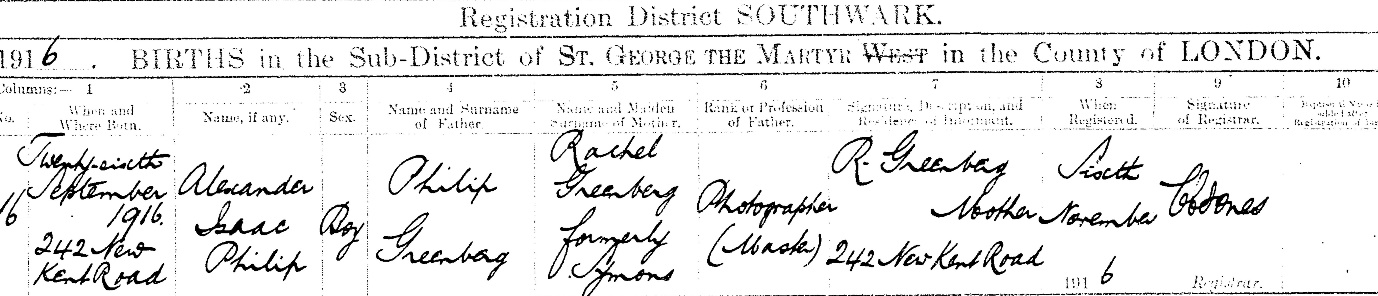 Registration District SOUTHWARK.
1916. BIRTHS in the Sub-District of ST. GEORGE THE MARTYR WEST in the County of LONDON.
Columns:— 1 2 3 4 5 6 7 8 9 10
No. When and Where Born. Name, if any. Sex. Name and Surname of Father. Name and Maiden Surname of Mother. Rank or Profession of Father. Signature, Description, and Residence of Informant. When Registered. Signature of Registrar.
16
Twenty-sixth
September
1916.
242 New
Kent Road
Alexander
Isaac
Philip
Boy
Philip
Greenberg
Rachel
Greenberg
formerly
Symons
Photographer
(Master)
R. Greenberg
Mother
242 New Kent Road
Sixth
November
1916
Jones
Registrar.